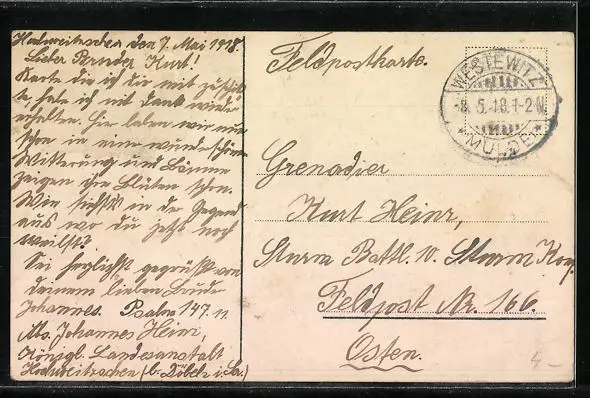 Hochweitzschen den 7. Mai 1918.
Lieber Bruder Kurt!
Karte die ich dir mit zuschick-
te, habe ich mit Dank wieder
erhalten. Hier haben wir nun
schon in eine wunderschöne
Witterung und Bäume
zeigen ihre Blüten schon.
Wie siehts in der Gegend
aus wo du jetzt noch
weilst?
Sei herzlichst gegrüßt von
deinem lieben Bruder
Johannes. Psalm 147. 11
Abs. Johannes Heinz,
Königl. Landesanstalt
Hochweitzschen (b. Döbeln i. Sa.)
Feldpostkarte.
WESTEWITZ
-8.5.18.1-2N
*MULDE*
Grenadier
Kurt Heinz,
Sturm Battl. 10. Sturm Kog.
Feldpost Nr. 166.
Osten.
4-